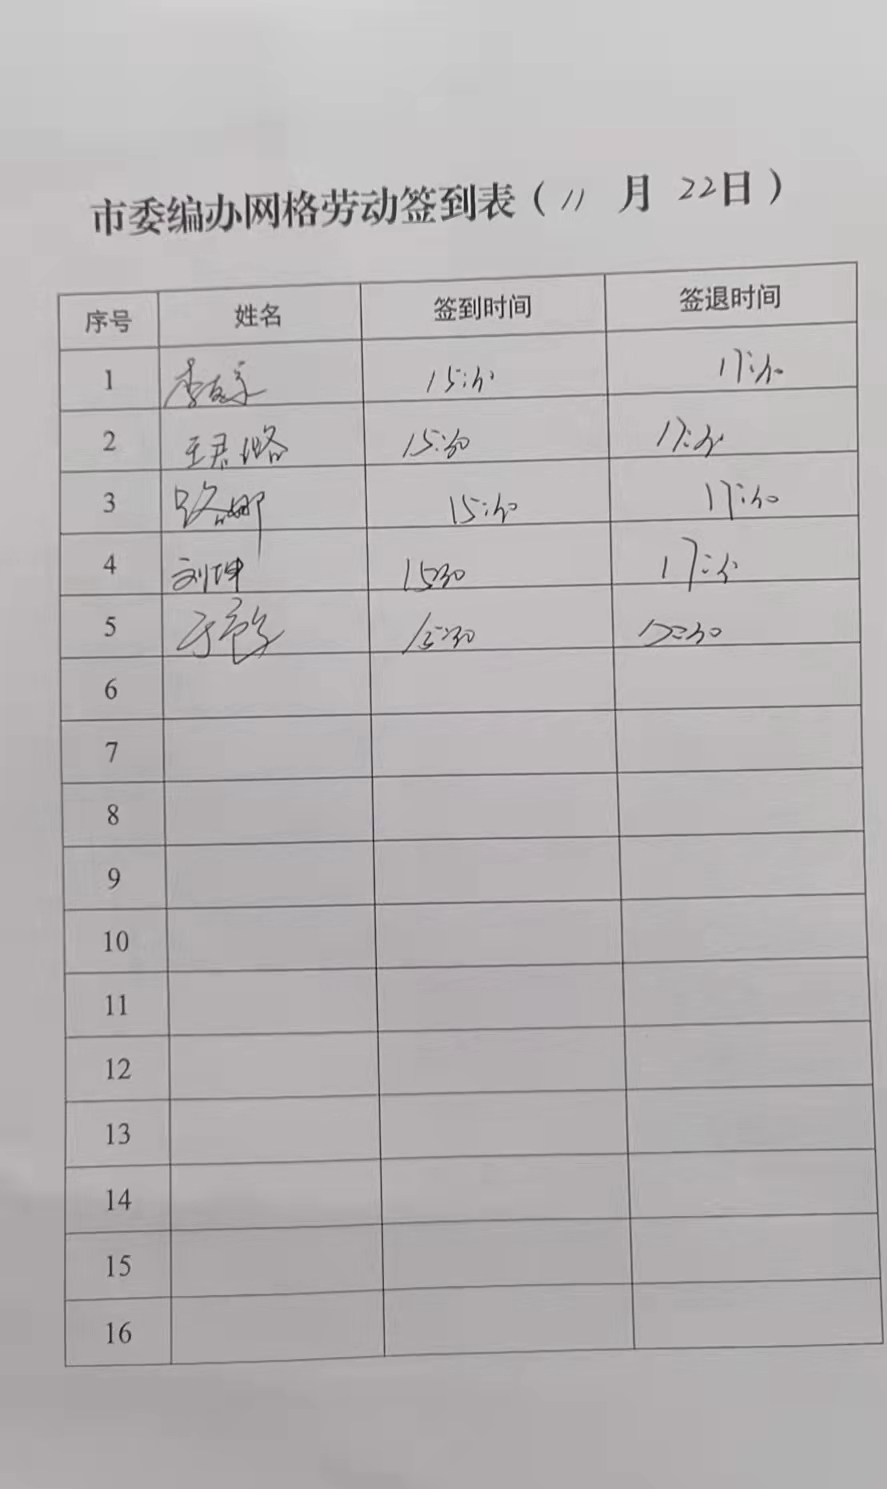 市委编办网格劳动签到表（11月22日）
序号 姓名 签到时间 签退时间
1 15:30 17:30
2 王君璐 15:30 17:30
3 路娜 15:30 17:30
4 刘坤 15:30 17:30
5 15:30 17:30
6
7
8
9
10
11
12
13
14
15
16